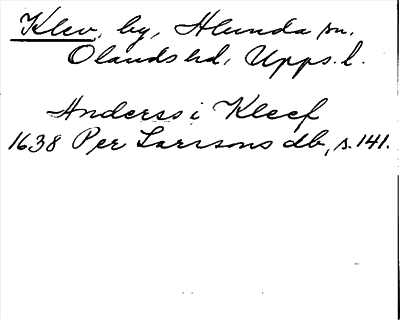 Klev, by, Alunda sn.
Olands hd, Upps. l.
Anderss i Kleef
1638 Per Larssons db, s. 141.